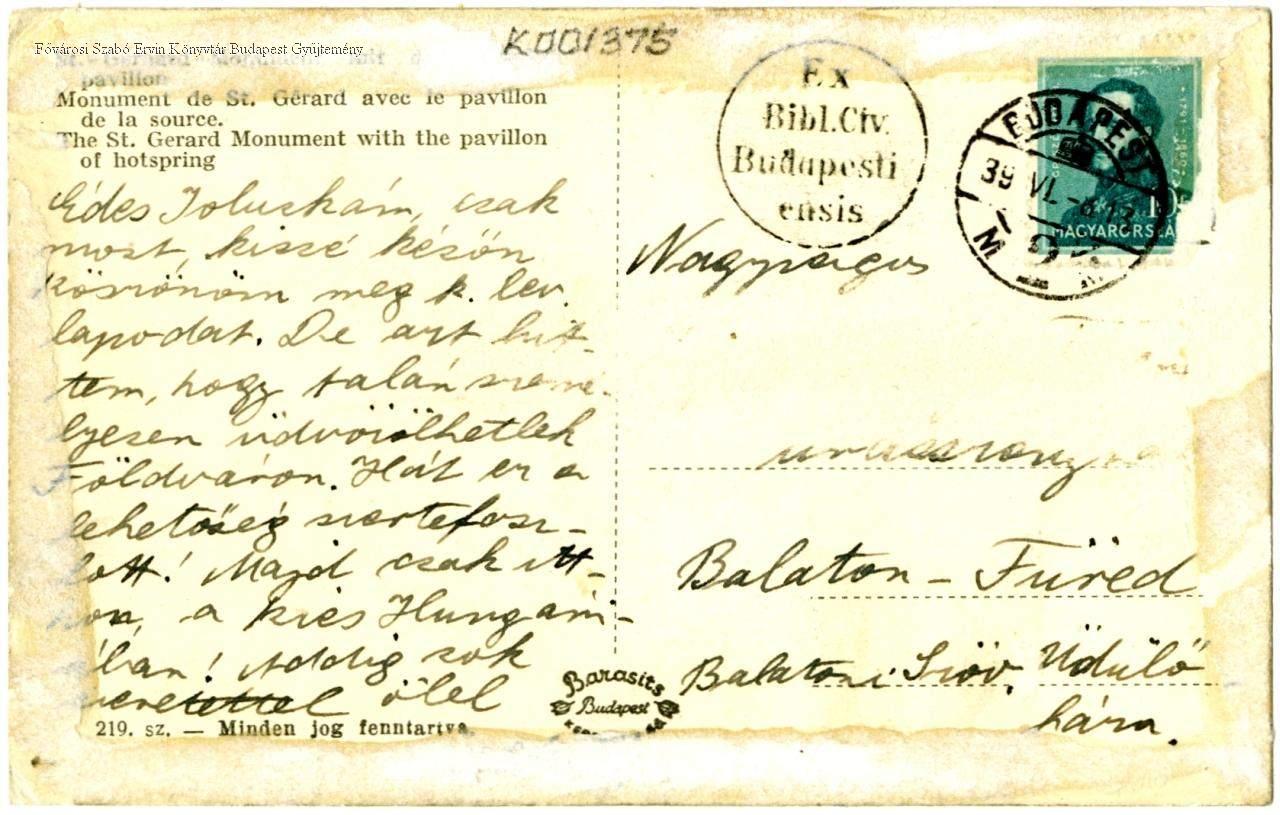 Fővárosi Szabó Ervin Könyvtár Budapest Gyűjtemény
K001375
pavillon
Monument de St. Gérard avec le pavillon
de la source.
The St. Gerard Monument with the pavillon
of hotspring
Édes Joluskám, csak
most, kissé későn
köszönöm meg k. lev.
lapodat. De azt hit-
tem, hogy talán szemé-
lyesen üdvözölhetlek
Földváron. Hát ez a
lehetőség szertefosz-
lott! Majd csak itt-
hon, a kies Hungári-
ában! Addig sok
szeretettel ölel
219. sz. — Minden jog fenntartva.
Barasits
Budapest
Ex
Bibl.Civ.
Budapesti
ensis
BUDAPEST
39 VI. -8 13
MAGYARORSZÁ
Nagyságos
uraasszony
Balaton - Füred
Balatoni Szöv. Üdülő
háza.